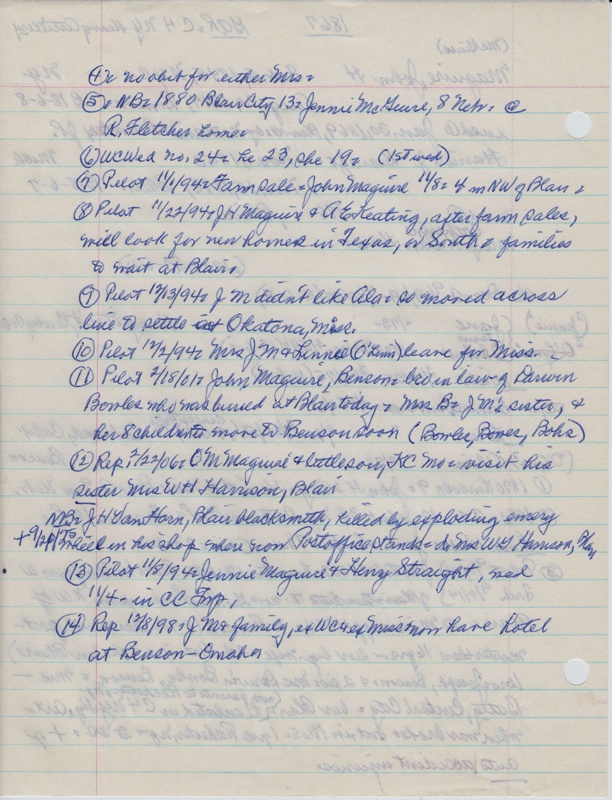 ④ no obit for either Mrs=
⑤ NB= 1880 Blair City 13= Jennie McGuire, 8 Nebr. @
R. Fletcher home=
⑥ WCWed no. 24= he 23, she 19= (1st wed)
⑦ Pilot 11/1/94= Farm sale= John Maguire 11/8= 4 m NW of Blair=
⑧ Pilot 11/22/94= J H Maguire & A E Keating, after farm sales,
will look for new homes in Texas, or South= families
to wait at Blair=
⑨ Pilot 12/13/94= J M didn't like Ala= so moved across
line to settle Okatona, Miss.
⑩ Pilot 12/2/94= Mrs J.M & Linnie leave for Miss.
⑪ Pilot 2/18/01= John Maguire, Benson= bro in law of Darwin
Bowles who was buried at Blair today= Mrs B= J M's sister, &
her 8 children to move to Benson soon (Bowles, Bowes, Bohs)
⑫ Rep 2/22/06= O M Maguire & little son, KC Mo= visit his
sister Mrs W H Harrison, Blair
NB= J H Van Horn, Blair blacksmith, killed by exploding emery
wheel in his shop where now Postoffice stands= Mrs W H Harrison,
⑬ Pilot 11/8/94= Jennie Maguire & Henry Straight, wed
11/4= in CC Twp,
⑭ Rep 12/8/98= J M & family, ex WC & ex Miss= now have hotel
at Benson-Omaha